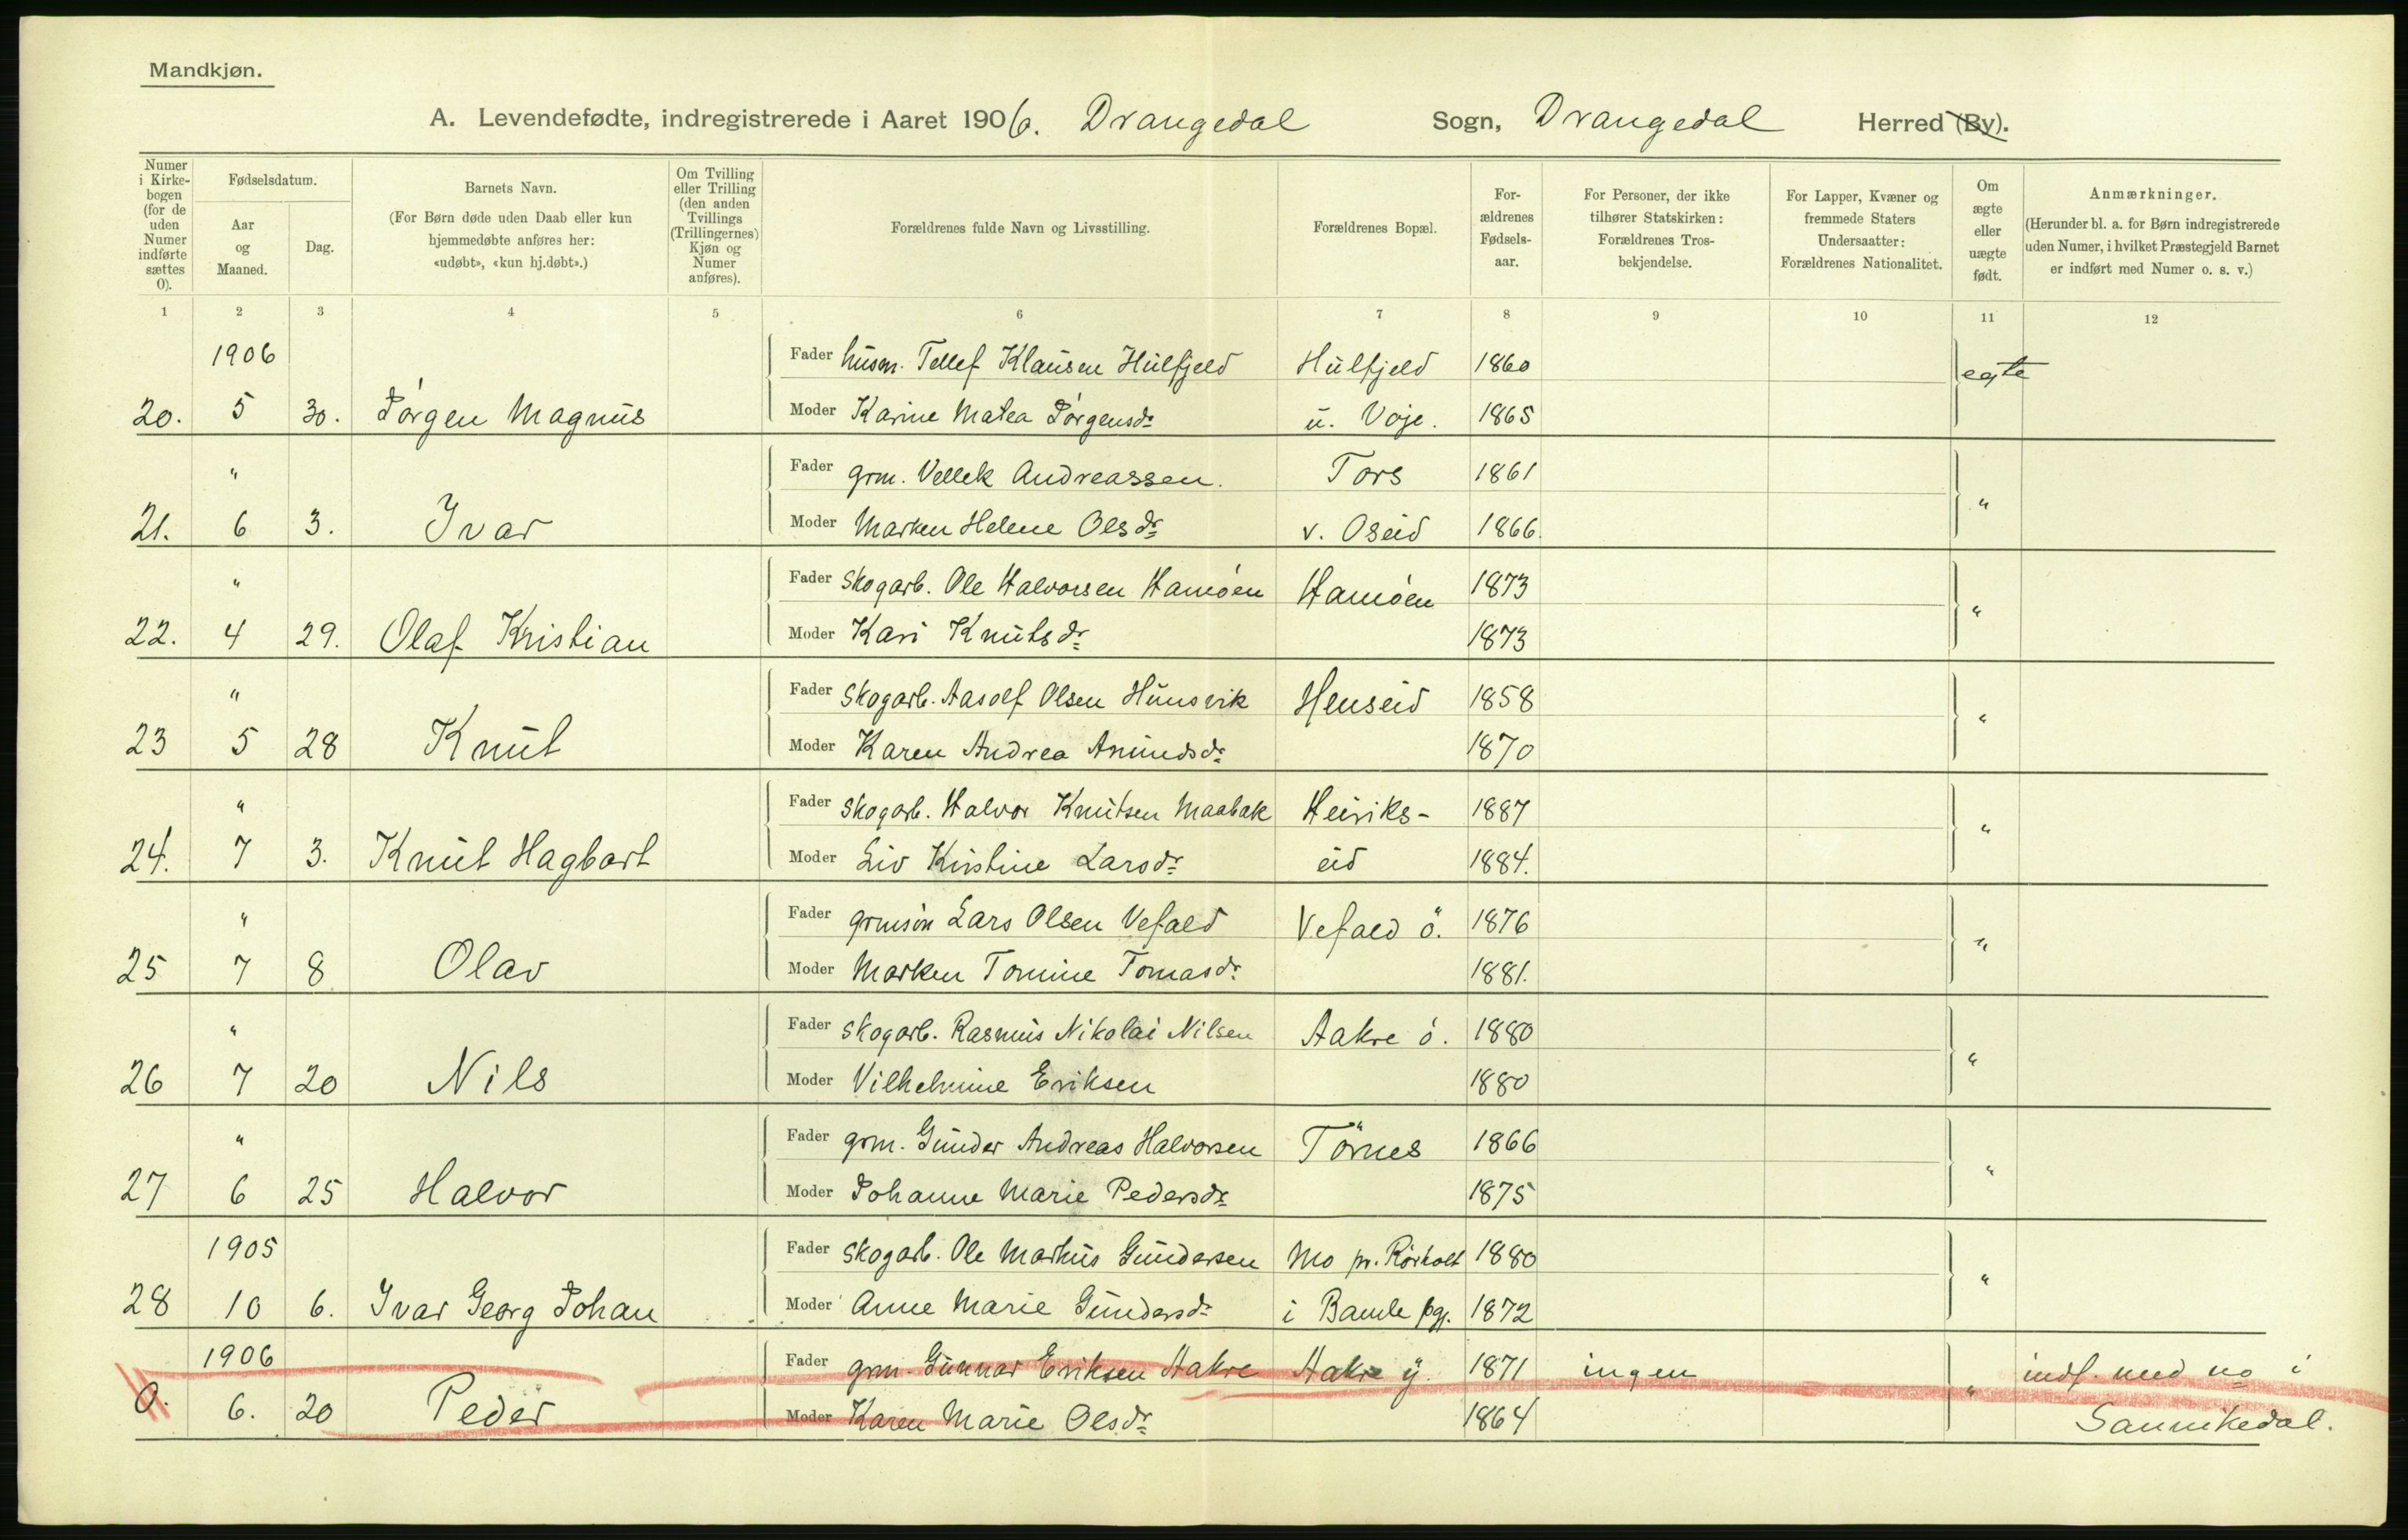 Mandkjøn.
A. Levendefødte, indregistrerede i Aaret 1906. Drangedal Sogn, Drangedal Herred (By).
Numer i Kirkebogen (for de uden Numer indførte sættes 0).
Fødselsdatum.
Aar og Maaned.
Dag.
Barnets Navn.
(For Børn døde uden Daab eller kun hjemmedøbte anføres her: «udøbt», «kun hj.døbt».)
Om Tvilling eller Trilling (den anden Tvillings (Trillingernes) Kjøn og Numer anføres).
Forældrenes fulde Navn og Livsstilling.
Forældrenes Bopæl.
Forældrenes Fødselsaar.
For Personer, der ikke tilhører Statskirken: Forældrenes Trosbekjendelse.
For Lapper, Kvæner og fremmede Staters Undersaatter: Forældrenes Nationalitet.
Om ægte eller uægte født.
Anmærkninger.
(Herunder bl. a. for Børn indregistrerede uden Numer, i hvilket Præstegjeld Barnet er indført med Numer o. s. v.)
1 2 3 4 5 6 7 8 9 10 11 12
1906 Fader husm. Tellef Klausen Hulfjeld Hulfjeld 1860 egte
20. 5 30. Jørgen Magnus Moder Karine Matea Jørgensdr u. Voje. 1865
" Fader grm. Vellek Andreassen. Tors 1861 "
21. 6 3. Ivar Moder Marken Helene Olsdr v. Oseid 1866.
" Fader Skogarb. Ole Halvorsen Hamøen Hamøen 1873 "
22. 4 29. Olaf Kristian Moder Kari Knutsdr 1873
" Fader Skogarb. Aasolf Olsen Hunsvik Henseid 1858 "
23 5 28 Knut Moder Karen Andrea Amundsdr 1870
" Fader Skogarb. Halvor Knutsen Maabak Heiriks- 1887 "
24. 7 3. Knut Hagbart Moder Liv Kristine Larsdr eid 1884.
" Fader grmsøn Lars Olsen Vefald Vefald ö. 1876 "
25 7 8 Olav Moder Marken Tomine Tomasdr 1881.
" Fader Skogarb. Rasmus Nikolai Nilsen Aakre ö. 1880 "
26 7 20 Nils Moder Vilhelmine Eriksen 1880
" Fader grm. Gunder Andreas Halvorsen Törnes 1866 "
27 6 25 Halvor Moder Johanne Marie Pedersdr 1875
1905 Fader Skogarb. Ole Markus Gundersen Mo pr. Rörholt 1880 "
28 10 6. Ivar Georg Johan Moder Anne Marie Gundersdr i Bamle pgj. 1872
1906 Fader grm. Gunnar Eriksen Aakre Aakre y. 1871 ingen " indf. med no i
0. 6. 20 Peder Moder Karen Marie Olsdr 1864 Sannikedal.